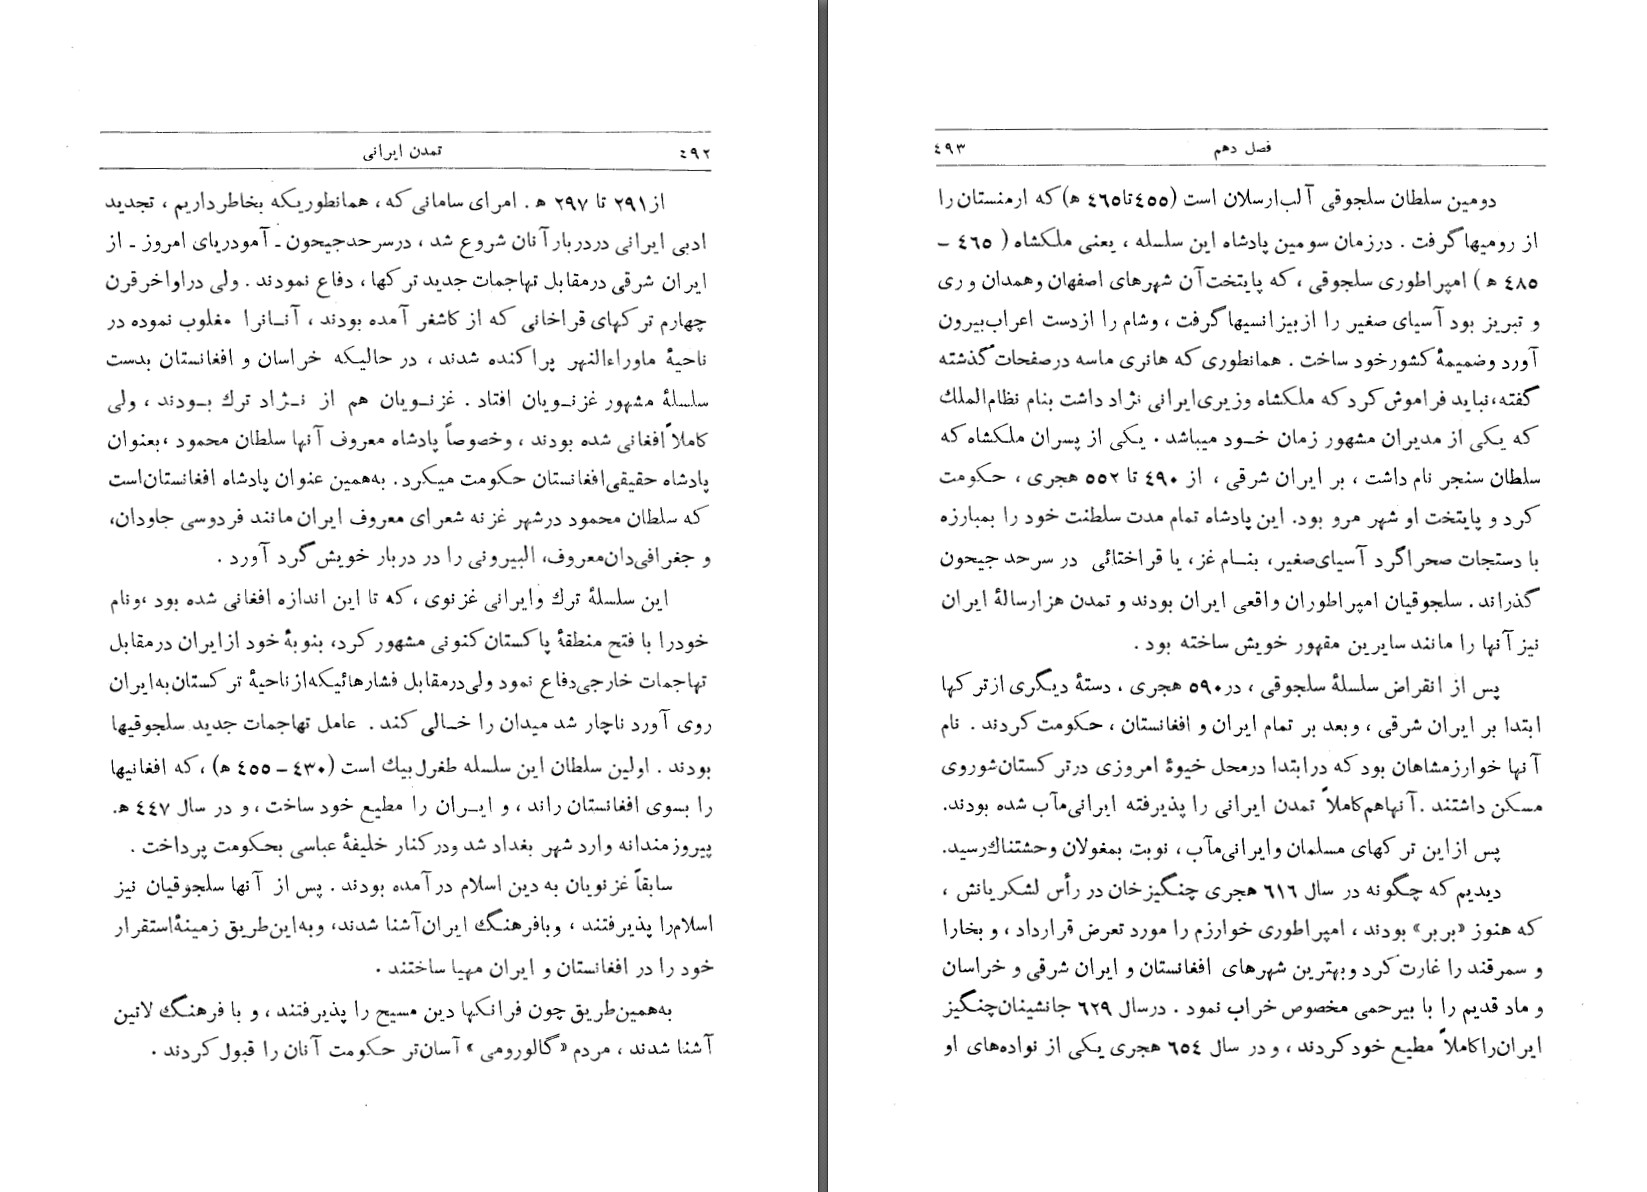 ٤٩٢ تمدن ایرانی
از ٢٩١ تا ٢٩٧ ه . امرای سامانی که ، همانطوریکه بخاطر داریم ، تجدید
ادبی ایرانی در دربار آنان شروع شد ، در سرحد جیحون ـ آمودریای امروز ـ از
ایران شرقی در مقابل تهاجمات جدید ترکها ، دفاع نمودند . ولی در اواخر قرن
چهارم ترکهای قراخانی که از کاشغر آمده بودند ، آنـانرا مغلوب نموده در
ناحیهٔ ماوراءالنهر پراکنده شدند ، در حالیکه خراسان و افغانستان بدست
سلسلهٔ مشهور غزنـویان افتاد . غزنـویان هم از نـژاد ترك بـودند ، ولی
کاملاً افغانی شده بودند ، وخصوصاً پادشاه معروف آنها سلطان محمود ،بعنوان
پادشاه حقیقی افغانستان حکومت میکرد . به‌همین عنوان پادشاه افغانستان‌است
که سلطان محمود در شهر غزنه شعرای معروف ایران مانند فردوسی جاودان،
و جغرافی‌دان‌معروف، البیرونی را در دربار خویش گرد آورد .
این سلسلهٔ ترك وایرانی غزنوی ، که تا این اندازه افغانی شده بود ،ونام
خودرا با فتح منطقهٔ پاکستان کنونی مشهور کرد، بنوبهٔ خود از ایران در مقابل
تهاجمات خارجی دفاع نمود ولی در مقابل فشارهائیکه از ناحیهٔ ترکستان به ایران
روی آورد ناچار شد میدان را خـالی کند . عامل تهاجمات جدید سلجوقیها
بودند . اولین سلطان این سلسله طغرل بیك است (٤٣٠ – ٤٥٥ ه) ، که افغانیها
را بسوی افغانستان راند ، و ایـران را مطیع خود ساخت ، و در سال ٤٤٧ ه.
پیروزمندانه وارد شهر بغداد شد ودر کنار خلیفهٔ عباسی بحکومت پرداخت .
سابقاً غزنویان به دین اسلام در آمده بودند . پس از آنها سلجوقیان نیز
اسلام را پذیرفتند ، وبا فرهنگ ایران آشنا شدند، وبه این طریق زمینهٔ استقرار
خود را در افغانستان و ایران مهیا ساختند .
به‌همین‌طریق چون فرانکها دین مسیح را پذیرفتند ، و با فرهنگ لاتین
آشنا شدند ، مردم «گالورومی» آسان‌تر حکومت آنان را قبول کردند .
فصل دهم ٤٩٣
دومین سلطان سلجوقی آلب ارسلان است (٤٥٥تا٤٦٥ ه) که ارمنستان را
از رومیها گرفت . در زمان سومین پادشاه این سلسله ، یعنی ملکشاه ( ٤٦٥ –
٤٨٥ ه ) امپراطوری سلجوقی ، که پایتخت آن شهرهای اصفهان وهمدان و ری
و تبریز بود آسیای صغیر را از بیزانسیها گرفت ، وشام را از دست اعراب بیرون
آورد وضمیمهٔ کشور خود ساخت . همانطوری که هانری ماسه در صفحات گذشته
گفته، نباید فراموش کرد که ملکشاه وزیری ایرانی نژاد داشت بنام نظام‌الملك
که یکی از مدیران مشهور زمان خـود میباشد . یکی از پسران ملکشاه که
سلطان سنجر نام داشت ، بر ایران شرقی ، از ٤٩٠ تا ٥٥٢ هجری ، حکومت
کرد و پایتخت او شهر مرو بود. این پادشاه تمام مدت سلطنت خود را بمبارزه
با دستجات صحراگرد آسیای صغیر، بنـام غز، یا قراختائی در سرحد جیحون
گذراند . سلجوقیان امپراطوران واقعی ایران بودند و تمدن هزارسالهٔ ایران
نیز آنها را مانند سایرین مقهور خویش ساخته بود .
پس از انقراض سلسلهٔ سلجوقی ، در ٥٩٠ هجری . دستهٔ دیگری از ترکها
ابتدا بر ایران شرقی ، وبعد بر تمام ایران و افغانستان ، حکومت کردند . نام
آنها خوارزمشاهان بود که در ابتدا در محل خیوهٔ امروزی در ترکستان شوروی
مسکن داشتند . آنها هم کاملاً تمدن ایرانی را پذیرفته ایرانی‌مآب شده بودند.
پس از این ترکهای مسلمان وایرانی‌مآب ، نوبت بمغولان وحشتناك رسید.
دیدیم که چگونه در سال ٦١٦ هجری چنگیزخان در رأس لشکریانش ،
که هنوز «بربر» بودند ، امپراطوری خوارزم را مورد تعرض قرارداد ، و بخارا
و سمرقند را غارت کرد و بهترین شهرهای افغانستان و ایران شرقی و خراسان
و ماد قدیم را با بیرحمی مخصوص خراب نمود . درسال ٦٢٩ جانشینان چنگیز
ایران را کاملاً مطیع خود کردند ، و در سال ٦٥٤ هجری یکی از نواده‌های او